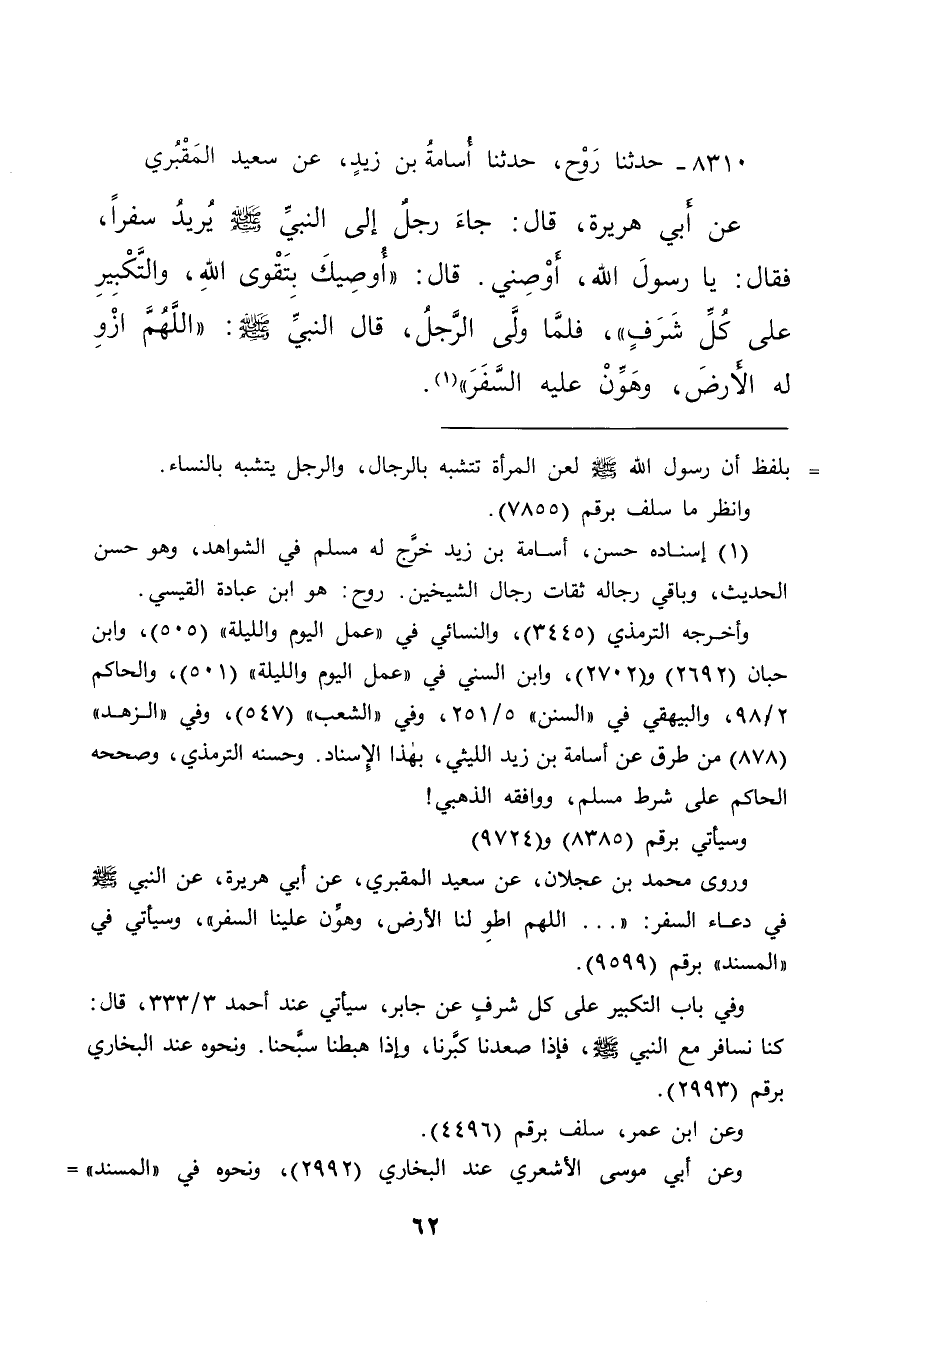 ٨٣١٠ ـ حدثنا رَوْح، حدثنا أُسامةُ بن زيدٍ، عن سعيد المَقْبُري
عن أَبي هريرة، قال: جاءَ رجلٌ إلى النبيِّ ﷺ يُريدُ سفراً،
فقال: يا رسولَ الله، أَوْصِني. قال: «أُوصِيكَ بِتَقْوى اللهِ، والتَّكْبيرِ
على كُلِّ شَرَفٍ»، فلمَّا ولَّى الرَّجلُ، قال النبيِّ ﷺ: «اللَّهُمَّ ازْوِ
له الأَرضَ، وهَوِّنْ عليه السَّفَرَ»(١).
= بلفظ أن رسول الله ﷺ لعن المرأة تتشبه بالرجال، والرجل يتشبه بالنساء.
وانظر ما سلف برقم (٧٨٥٥).
(١) إسناده حسن، أسامة بن زيد خرَّج له مسلم في الشواهد، وهو حسن
الحديث، وباقي رجاله ثقات رجال الشيخين. روح: هو ابن عبادة القيسي.
وأخرجه الترمذي (٣٤٤٥)، والنسائي في «عمل اليوم والليلة» (٥٠٥)، وابن
حبان (٢٦٩٢) و(٢٧٠٢)، وابن السني في «عمل اليوم والليلة» (٥٠١)، والحاكم
٩٨/٢، والبيهقي في «السنن» ٢٥١/٥، وفي «الشعب» (٥٤٧)، وفي «الزهد»
(٨٧٨) من طرق عن أسامة بن زيد الليثي، بهٰذا الإسناد. وحسنه الترمذي، وصححه
الحاكم على شرط مسلم، ووافقه الذهبي!
وسيأتي برقم (٨٣٨٥) و(٩٧٢٤)
وروى محمد بن عجلان، عن سعيد المقبري، عن أبي هريرة، عن النبي ﷺ
في دعاء السفر: «... اللهم اطوِ لنا الأرض، وهوِّن علينا السفر»، وسيأتي في
«المسند» برقم (٩٥٩٩).
وفي باب التكبير على كل شرفٍ عن جابر، سيأتي عند أحمد ٣٣٣/٣، قال:
كنا نسافر مع النبي ﷺ، فإذا صعدنا كبَّرنا، وإذا هبطنا سبَّحنا. ونحوه عند البخاري
برقم (٢٩٩٣).
وعن ابن عمر، سلف برقم (٤٤٩٦).
وعن أبي موسى الأشعري عند البخاري (٢٩٩٢)، ونحوه في «المسند» =
٦٢